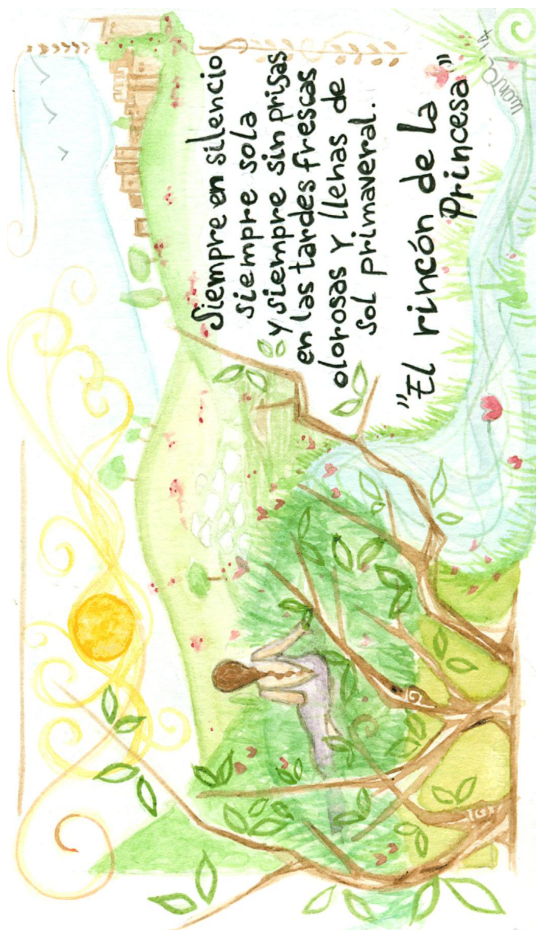 Siempre en silencio
siempre sola
y siempre sin prisas
en las tardes frescas
olorosas y llenas de
sol primaveral.
"El rincón de la
Princesa"